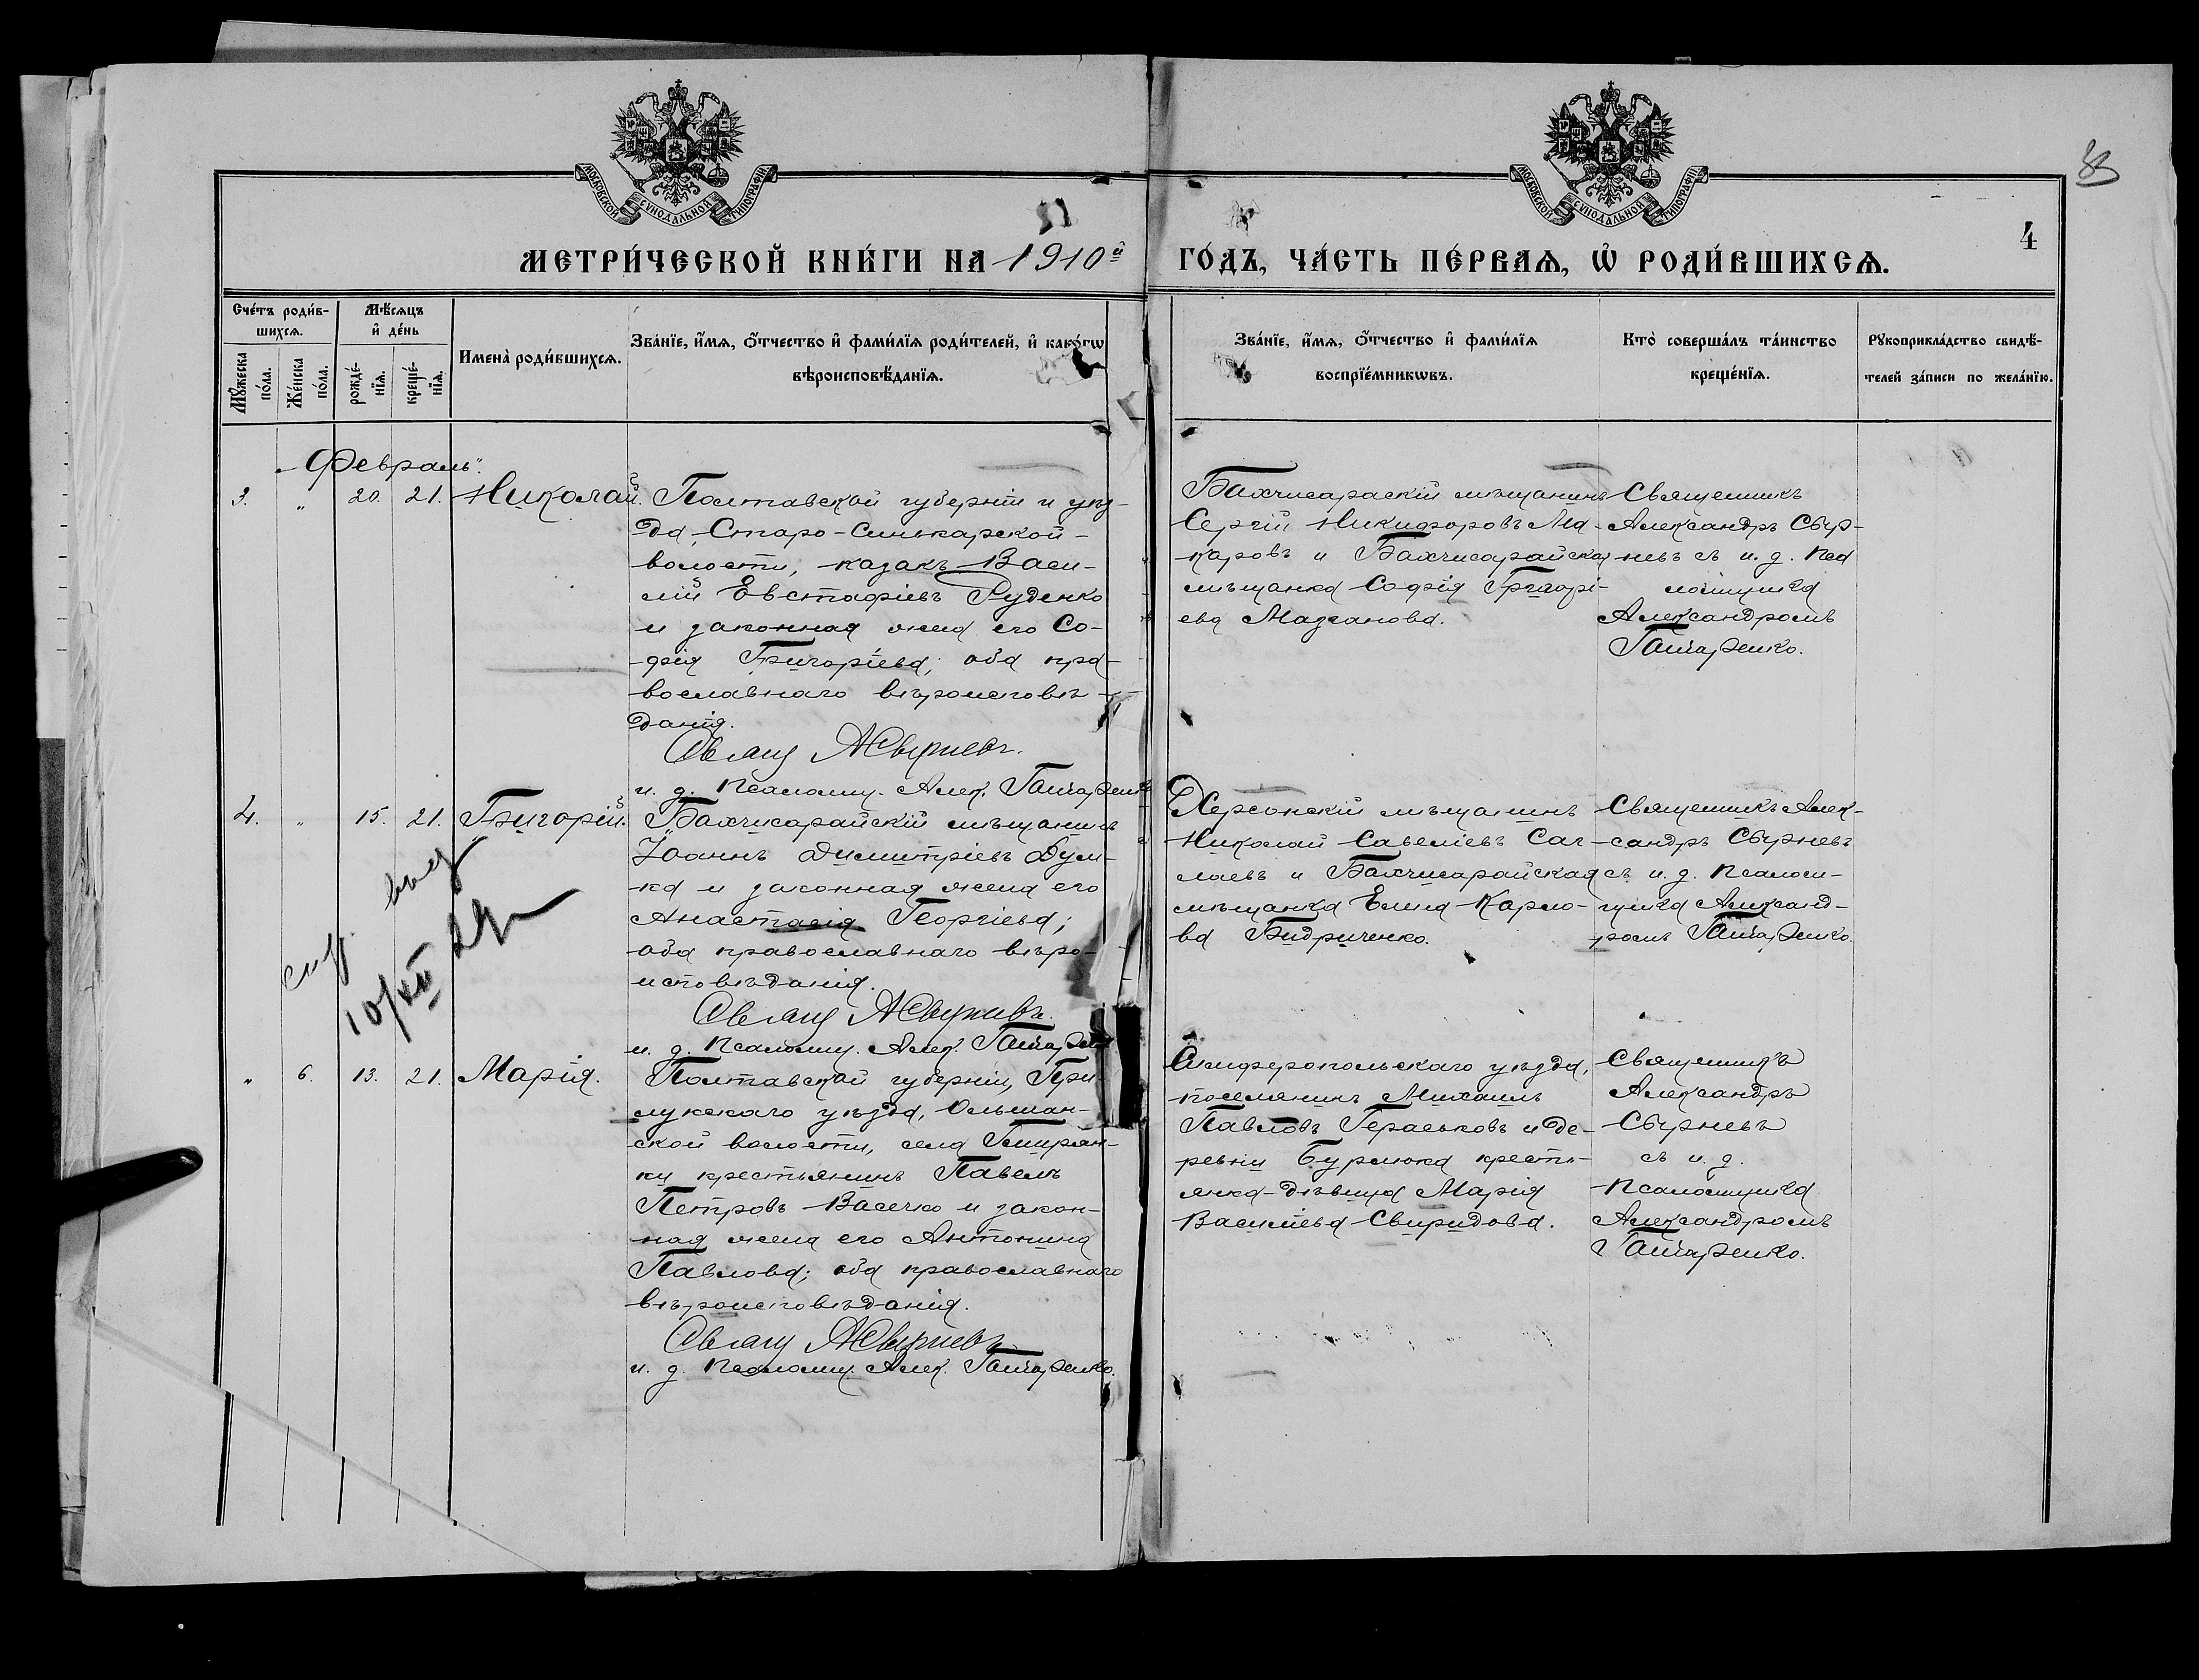 МОСКОВСКОЙ СѴНОДАЛЬНОЙ ТИПОГРАФІИ
МОСКОВСКОЙ СѴНОДАЛЬНОЙ ТИПОГРАФІИ
4
МЕТРИ́ЧЕСКОЙ КНИ́ГИ НА 1910й ГО́ДЪ, ЧА́СТЬ ПЕ́РВАѦ, Ѽ РОДИ́ВШИХСѦ.
Сче́тъ роди́в-
шихсѧ.
Мꙋжеска по́ла.
Же́нска по́ла.
Мѣ́сѧцъ
и҆ де́нь
рожде́-
нїѧ.
креще́-
нїѧ.
Имена̀ роди́вшихсѧ.
Зва́нїе, и҆́мѧ, ѻ҆́тчество и҆ фами́лїѧ роди́телей, и҆ како́гѡ
вѣроисповѣ́данїѧ.
Зва́нїе, и҆́мѧ, ѻ҆́тчество и҆ фами́лїѧ
воспрїе́мникѡвъ.
Кто̀ соверша́лъ та́инство
креще́нїѧ.
Рꙋкоприкла́дство свидѣ́-
телей за́писи по жела́нїю.
„Февраль".
3. „ 20. 21. Николай.
Полтавской губерніи и уѣз-
да, Старо-Синжарской-
волости, казакъ Васи-
лій Евстафіевъ Руденко
и законная жена его Со-
-фія Григоріева; оба пра-
вославнаго вѣроисповѣ-
данія.
Свящ А Свирневъ.
и. д. Псаломщ. Алек. Гончаренко
Бахчисараскій мѣщанинъ
Сергій Никифоровъ Ма-
каровъ и Бахчисарайская
мѣщанка Софія Григорі-
ева Мазганова.
Священникъ
Александръ Свир-
невъ съ и. д. Пса
ломщика
Александромъ
Гончаренко.
4. „ 15. 21. Григорій.
Бахчисарайскій мѣщанинъ
Іоаннъ Димитріевъ Дум-
ка и законная жена его
Анастасія Георгіева;
оба православнаго вѣро-
исповѣданія.
Свящ А Свирневъ.
и. д. Псаломщ. Алек. Гончаренко
Херсонскій мѣщанинъ
Николай Савеліевъ Саг-
лаевъ и Бахчисарайская
мѣщанка Елена Карпо-
ва Бидриченко.
Священникъ Алек-
сандръ Свирневъ
съ и. д. Псалом-
щика Александ-
ромъ Гончаренко.
10/XII
„ 6. 13. 21. Марія.
Полтавской губерніи, При-
лукскаго уѣзда, Ольшан-
ской волости, села Гмирян-
ки крестьянинъ Павелъ
Петровъ Васечко и закон-
ная жена его Антонина
Павлова; оба православнаго
вѣроисповѣданія.
Свящ А Свирневъ
и. д. Псаломщ. Алек. Гончаренко.
Симферопольскаго уѣзда,
поселянинъ Михаилъ
Павловъ Гераськовъ и де-
ревни Бурлюка кресть-
янка-дѣвица Марія
Василіева Свиридова.
Священникъ
Александръ
Свирневъ
съ и. д.
Псаломщика
Александромъ
Гончаренко.